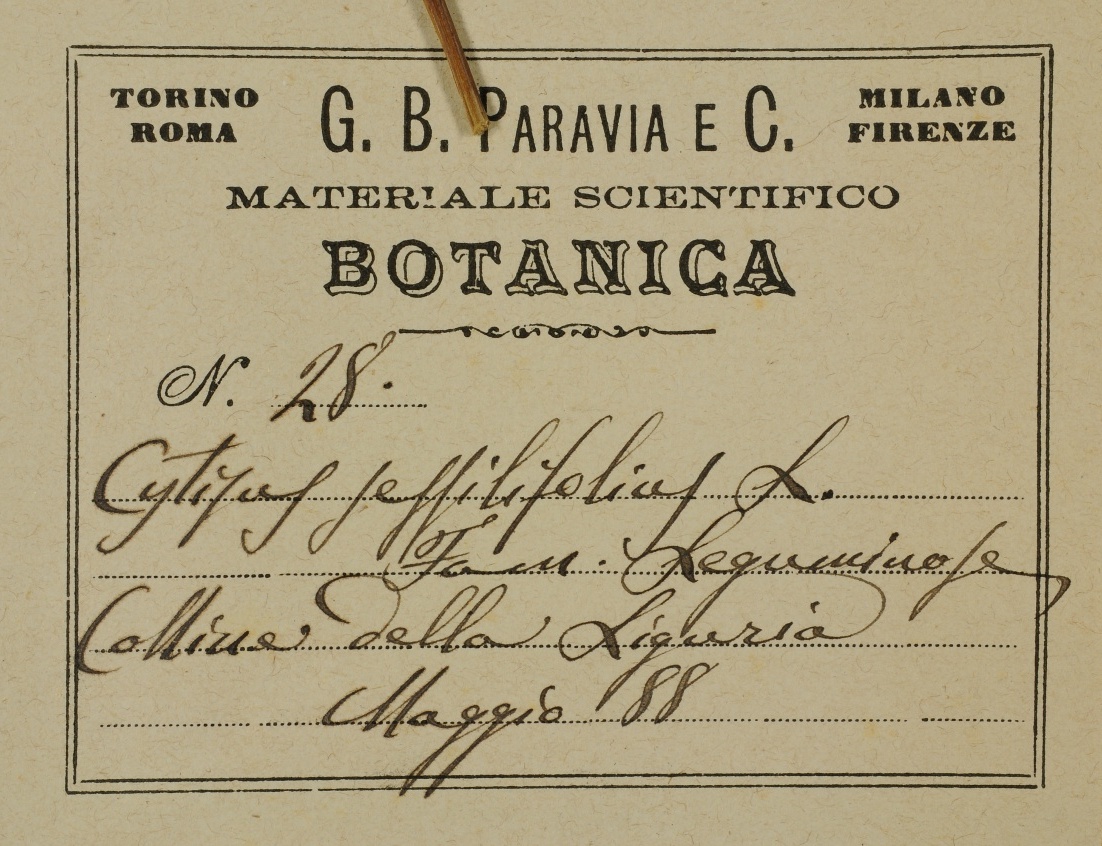 TORINO ROMA
G. B. PARAVIA E C.
MILANO FIRENZE
MATERIALE SCIENTIFICO
BOTANICA
N. 28.
Cytisus sessilifolius L.
Fam. Leguminose
Colline della Liguria
Maggio 88